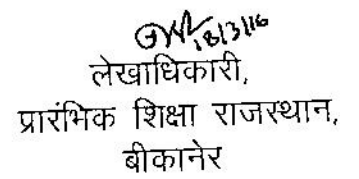 18/3/16
लेखाधिकारी,
प्रारंभिक शिक्षा राजस्थान,
बीकानेर